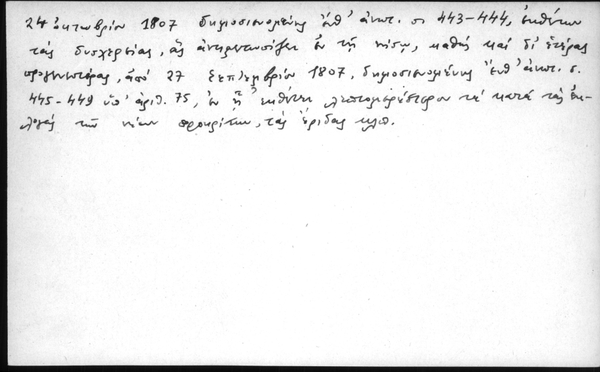 24 ὀκτωβρίου 1807 δημοσιευομένης ἔνθ' ἀνωτ. σ. 443-444, ἐκθέτων
τὰς δυσχερείας, ἃς ἀντιμετωπίζει ἐν τῇ νήσῳ, καθὼς καὶ δι' ἑτέρας
προγενεστέρας, ἀπὸ 27 Σεπτεμβρίου 1807, δημοσιευομένης ἔνθ' ἀνωτ. σ.
445-449 ὑπ' ἀριθ. 75, ἐν ᾗ ἐκθέτει λεπτομερέστερον τὰ κατὰ τὰς ἐκ-
λογὰς τῶν νέων προκρίτων, τὰς ἔριδας κλπ.